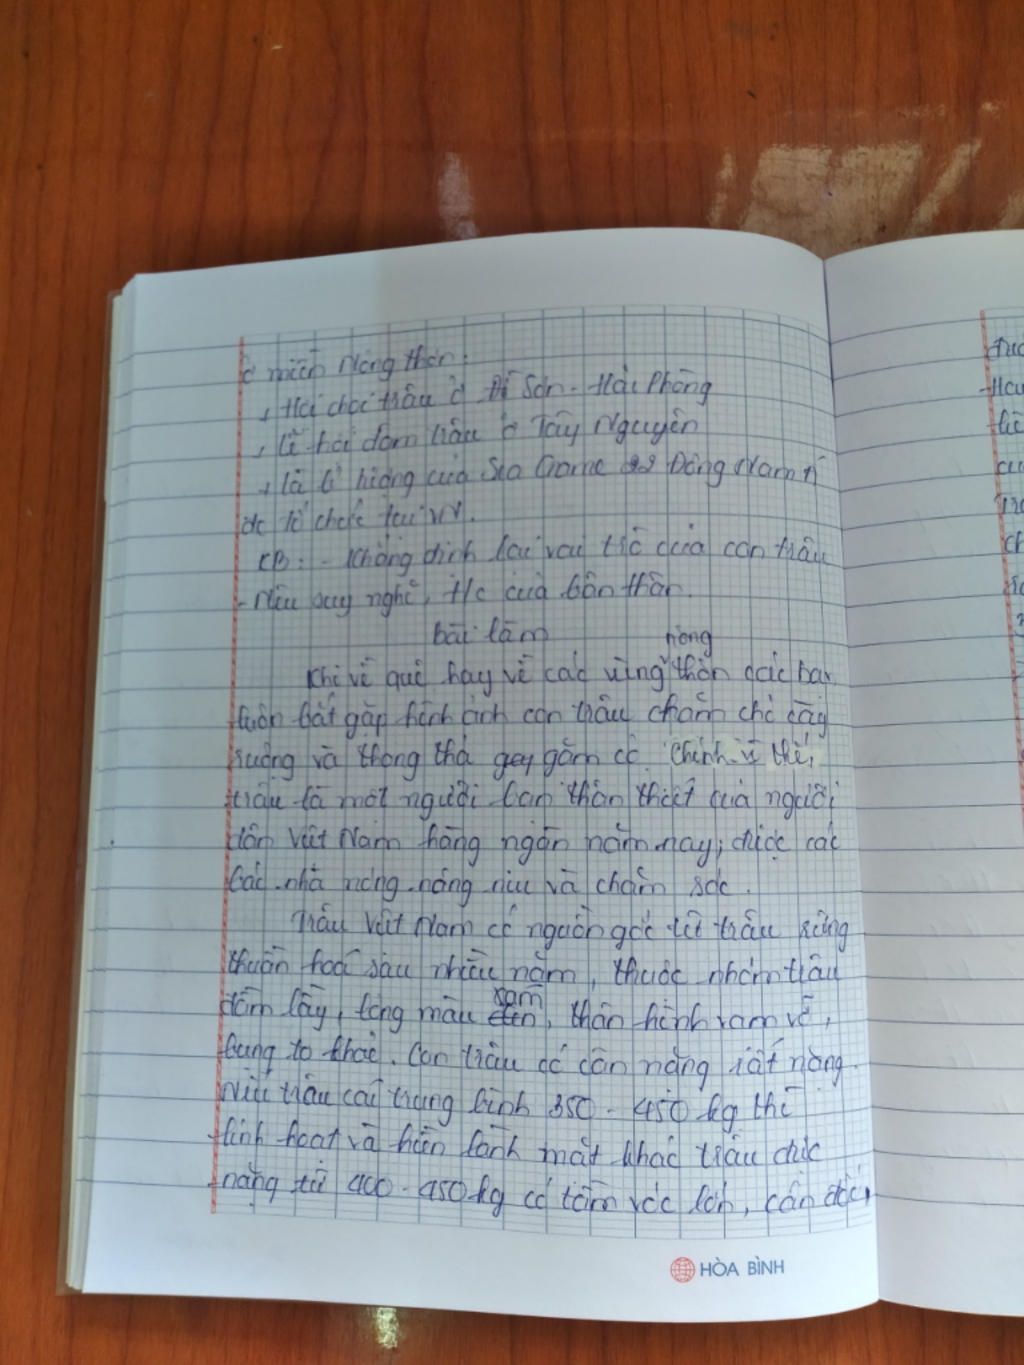 ở miền nông thôn:
+ Hội chọi trâu ở Đồ Sơn - Hải Phòng
+ Lễ hội đâm trâu ở Tây Nguyên
+ là biểu tượng của Sea Game Đông Nam Á
đc tổ chức tại VN.
KB: - Khẳng định lại vai trò của con trâu
- Nêu suy nghĩ, t/c của bản thân.
bài làm
Khi về quê hay về các vùng nông thôn các bạn
luôn bắt gặp hình ảnh con trâu chăm chỉ cày
ruộng và thong thả gặm cỏ. Chính vì thế,
trâu là một người bạn thân thiết của người
dân Việt Nam hàng ngàn năm nay, được các
bác nhà nông nâng niu và chăm sóc.
Trâu Việt Nam có nguồn gốc từ trâu rừng
thuần hoá sau nhiều năm, thuộc nhóm trâu
đầm lầy, lông màu xám đen, thân hình vạm vỡ,
bụng to khoẻ. Con trâu có cân nặng rất nặng.
Nếu trâu cái trung bình 350 - 450 kg thì
linh hoạt và hiền lành mặt khác trâu đực
nặng từ 400 - 450 kg có tầm vóc lớn, cân đối,
HÒA BÌNH